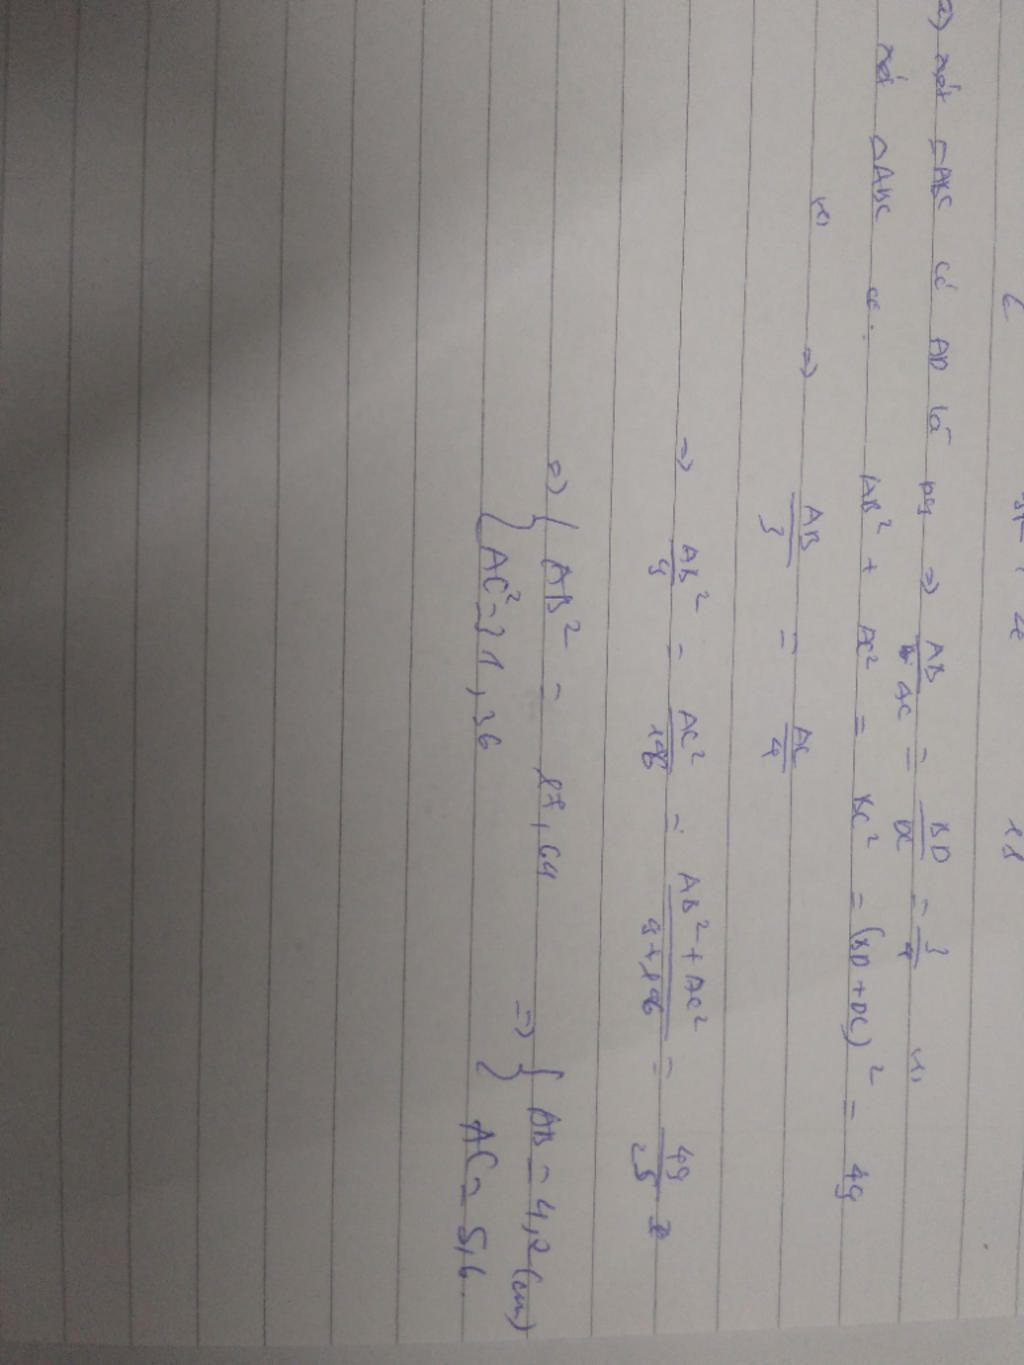 2) xét △ABC có AD là pg ⇒ AB/AC = BD/DC = 3/4 (1)
xét △ABC có: AB² + AC² = BC² = (BD + DC)² = 49
(1) ⇒ AB/3 = AC/4
⇒ AB²/9 = AC²/16 = AB² + AC²/9 + 16 = 49/25
⇒ { AB² = 17,64 ⇒ { AB = 4,2 (cm)
{ AC² = 31,36 { AC = 5,6.